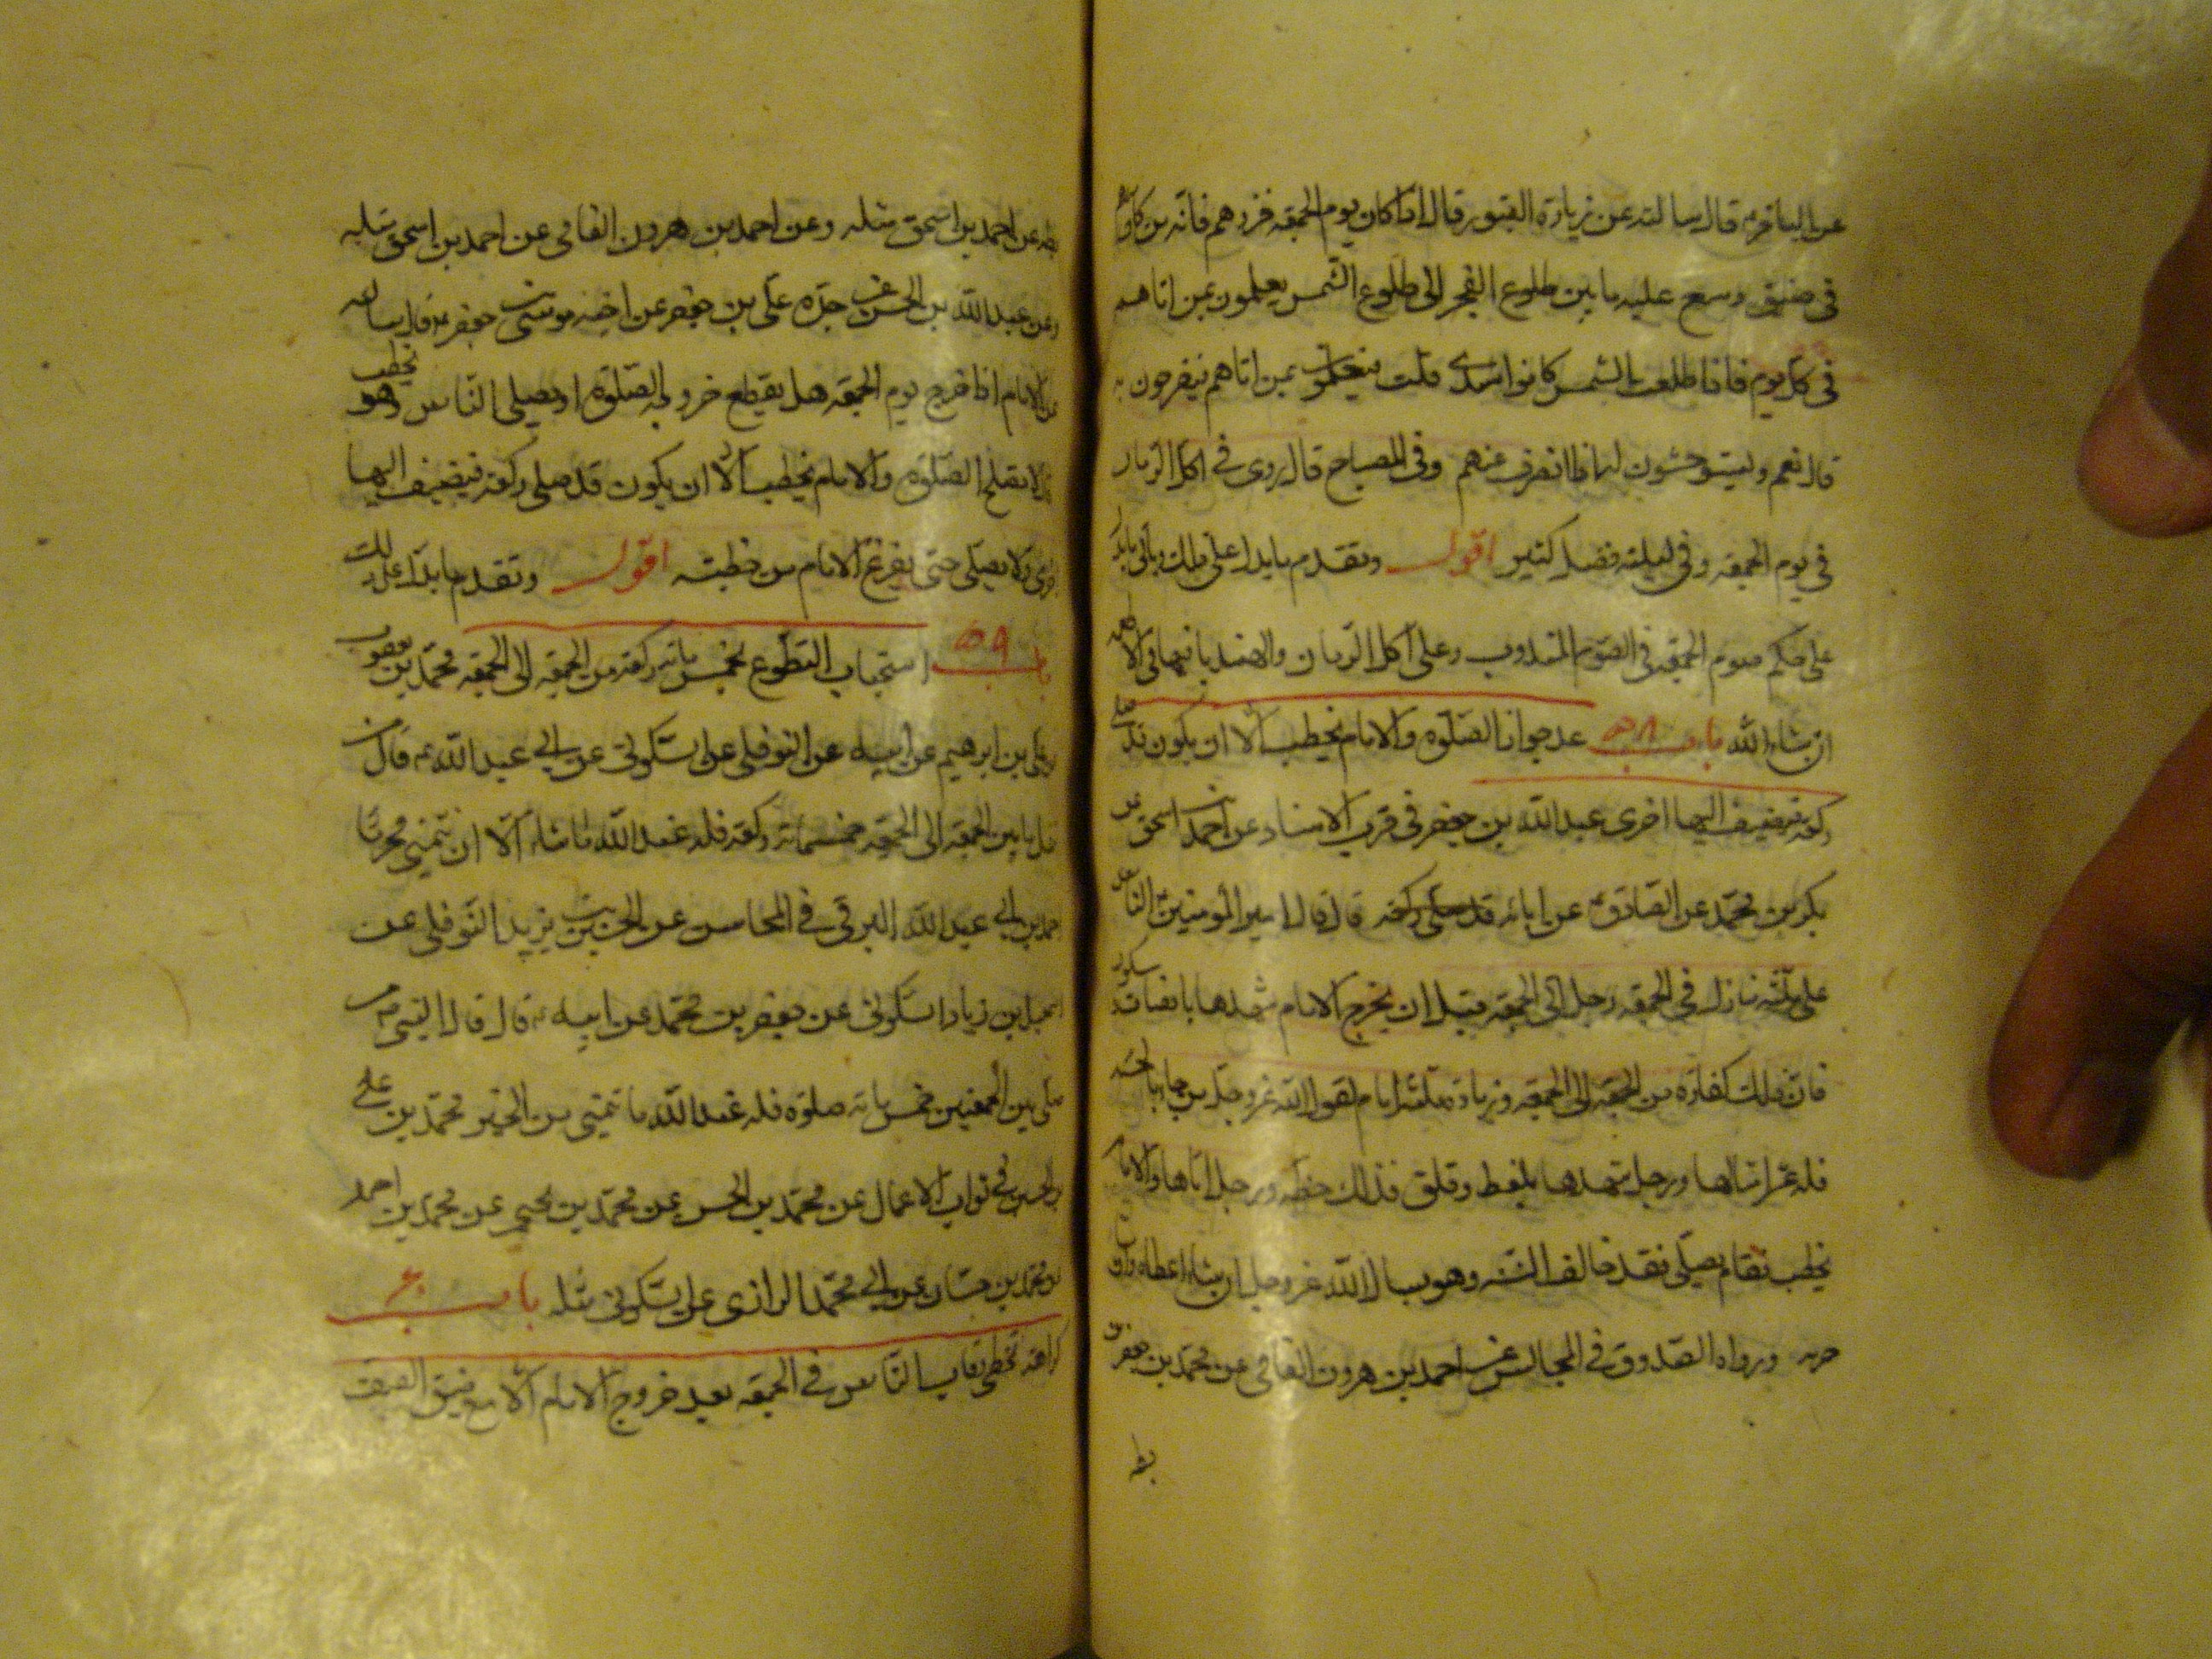 عن الباقر ع قال سالته عن زيارة القبور قال اذا كان يوم الجمعة فزرهم فانه من كان منهم
فى ضيق وسع عليه ما بين طلوع الفجر الى طلوع الشمس يعلمون بمن اتاهم
فى كل يوم فاذا طلعت الشمس كانوا سدى قلت فيعلمون بمن اتاهم فيفرحون به
قال نعم ويستوحشون له اذا انصرف عنهم وفى المصباح قال روى فى اكل الرمان
فى يوم الجمعة وفى ليلته فضل كثير اقول وتقدم ما يدل على ذلك وياتى ما يدل
على حكم صوم الجمعة فى الصوم المندوب وعلى اكل الرمان والهندبا فيها فى الاطعمة
ان شاء الله باب ٥٨ عدم جواز الصلوة والامام يخطب الا ان يكون قد صلى
ركعة فيضيف اليها اخرى عبد الله بن جعفر فى قرب الاسناد عن احمد بن اسحق عن
بكر بن محمد عن الصادق ع عن ابائه قال قال امير المؤمنين ع الناس
على ثلثة منازل فى الجمعة رجل اتى الجمعة قبل ان يخرج الامام شهدها بانصات وسكون
فان ذلك كفارة من الجمعة الى الجمعة وزيادة ثلثة ايام لقول الله عز وجل من جاء بالحسنة
فله عشر امثالها ورجل شهدها بلغط وقلق فذلك حظه ورجل اتاها والامام
يخطب فقام يصلى فقد خالف السنة وهو يسال الله عز وجل ان شاء اعطاه وان شاء
حرمه ورواه الصدوق فى المجالس عن احمد بن هرون الفامى عن محمد بن جعفر بن
بطه
بطه عن احمد بن اسحق مثله وعن احمد بن هرون الفامى عن احمد بن اسحق مثله
وعن عبد الله بن الحسن عن جده على بن جعفر عن اخيه موسى بن جعفر ع قال سالته
عن الامام اذا خرج يوم الجمعة هل يقطع خروجه الصلوة او يصلى الناس وهو يخطب
قال لا يصلح الصلوة والامام يخطب الا ان يكون قد صلى ركعة فيضيف اليها
اخرى ولا يصلى حتى يفرغ الامام من خطبته اقول وتقدم ما يدل على ذلك
باب ٥٩ استحباب التطوع بخمس مائة ركعة من الجمعة الى الجمعة محمد بن يعقوب
عن على بن ابرهيم عن ابيه عن النوفلى عن السكونى عن ابى عبد الله ع قال من
صلى ما بين الجمعة الى الجمعة خمسمائة ركعة فله عند الله ما شاء الا ان يتمنى محرما
احمد بن ابى عبد الله البرقى فى المحاسن عن الحسين بن يزيد النوفلى عن
اسمعيل بن زياد السكونى عن جعفر بن محمد عن ابيه ع قال قال النبى ص من
صلى بين الجمعتين خمس مائة صلوة فله عند الله ما يتمنى من الخير محمد بن على
بن الحسين فى ثواب الاعمال عن محمد بن الحسن عن محمد بن يحيى عن محمد بن احمد
عن محمد بن حسان عن ابى محمد الرازى عن السكونى مثله باب ٦٠
كراهة تخطى رقاب الناس فى الجمعة بعد خروج الامام الا مع ضيق الصف